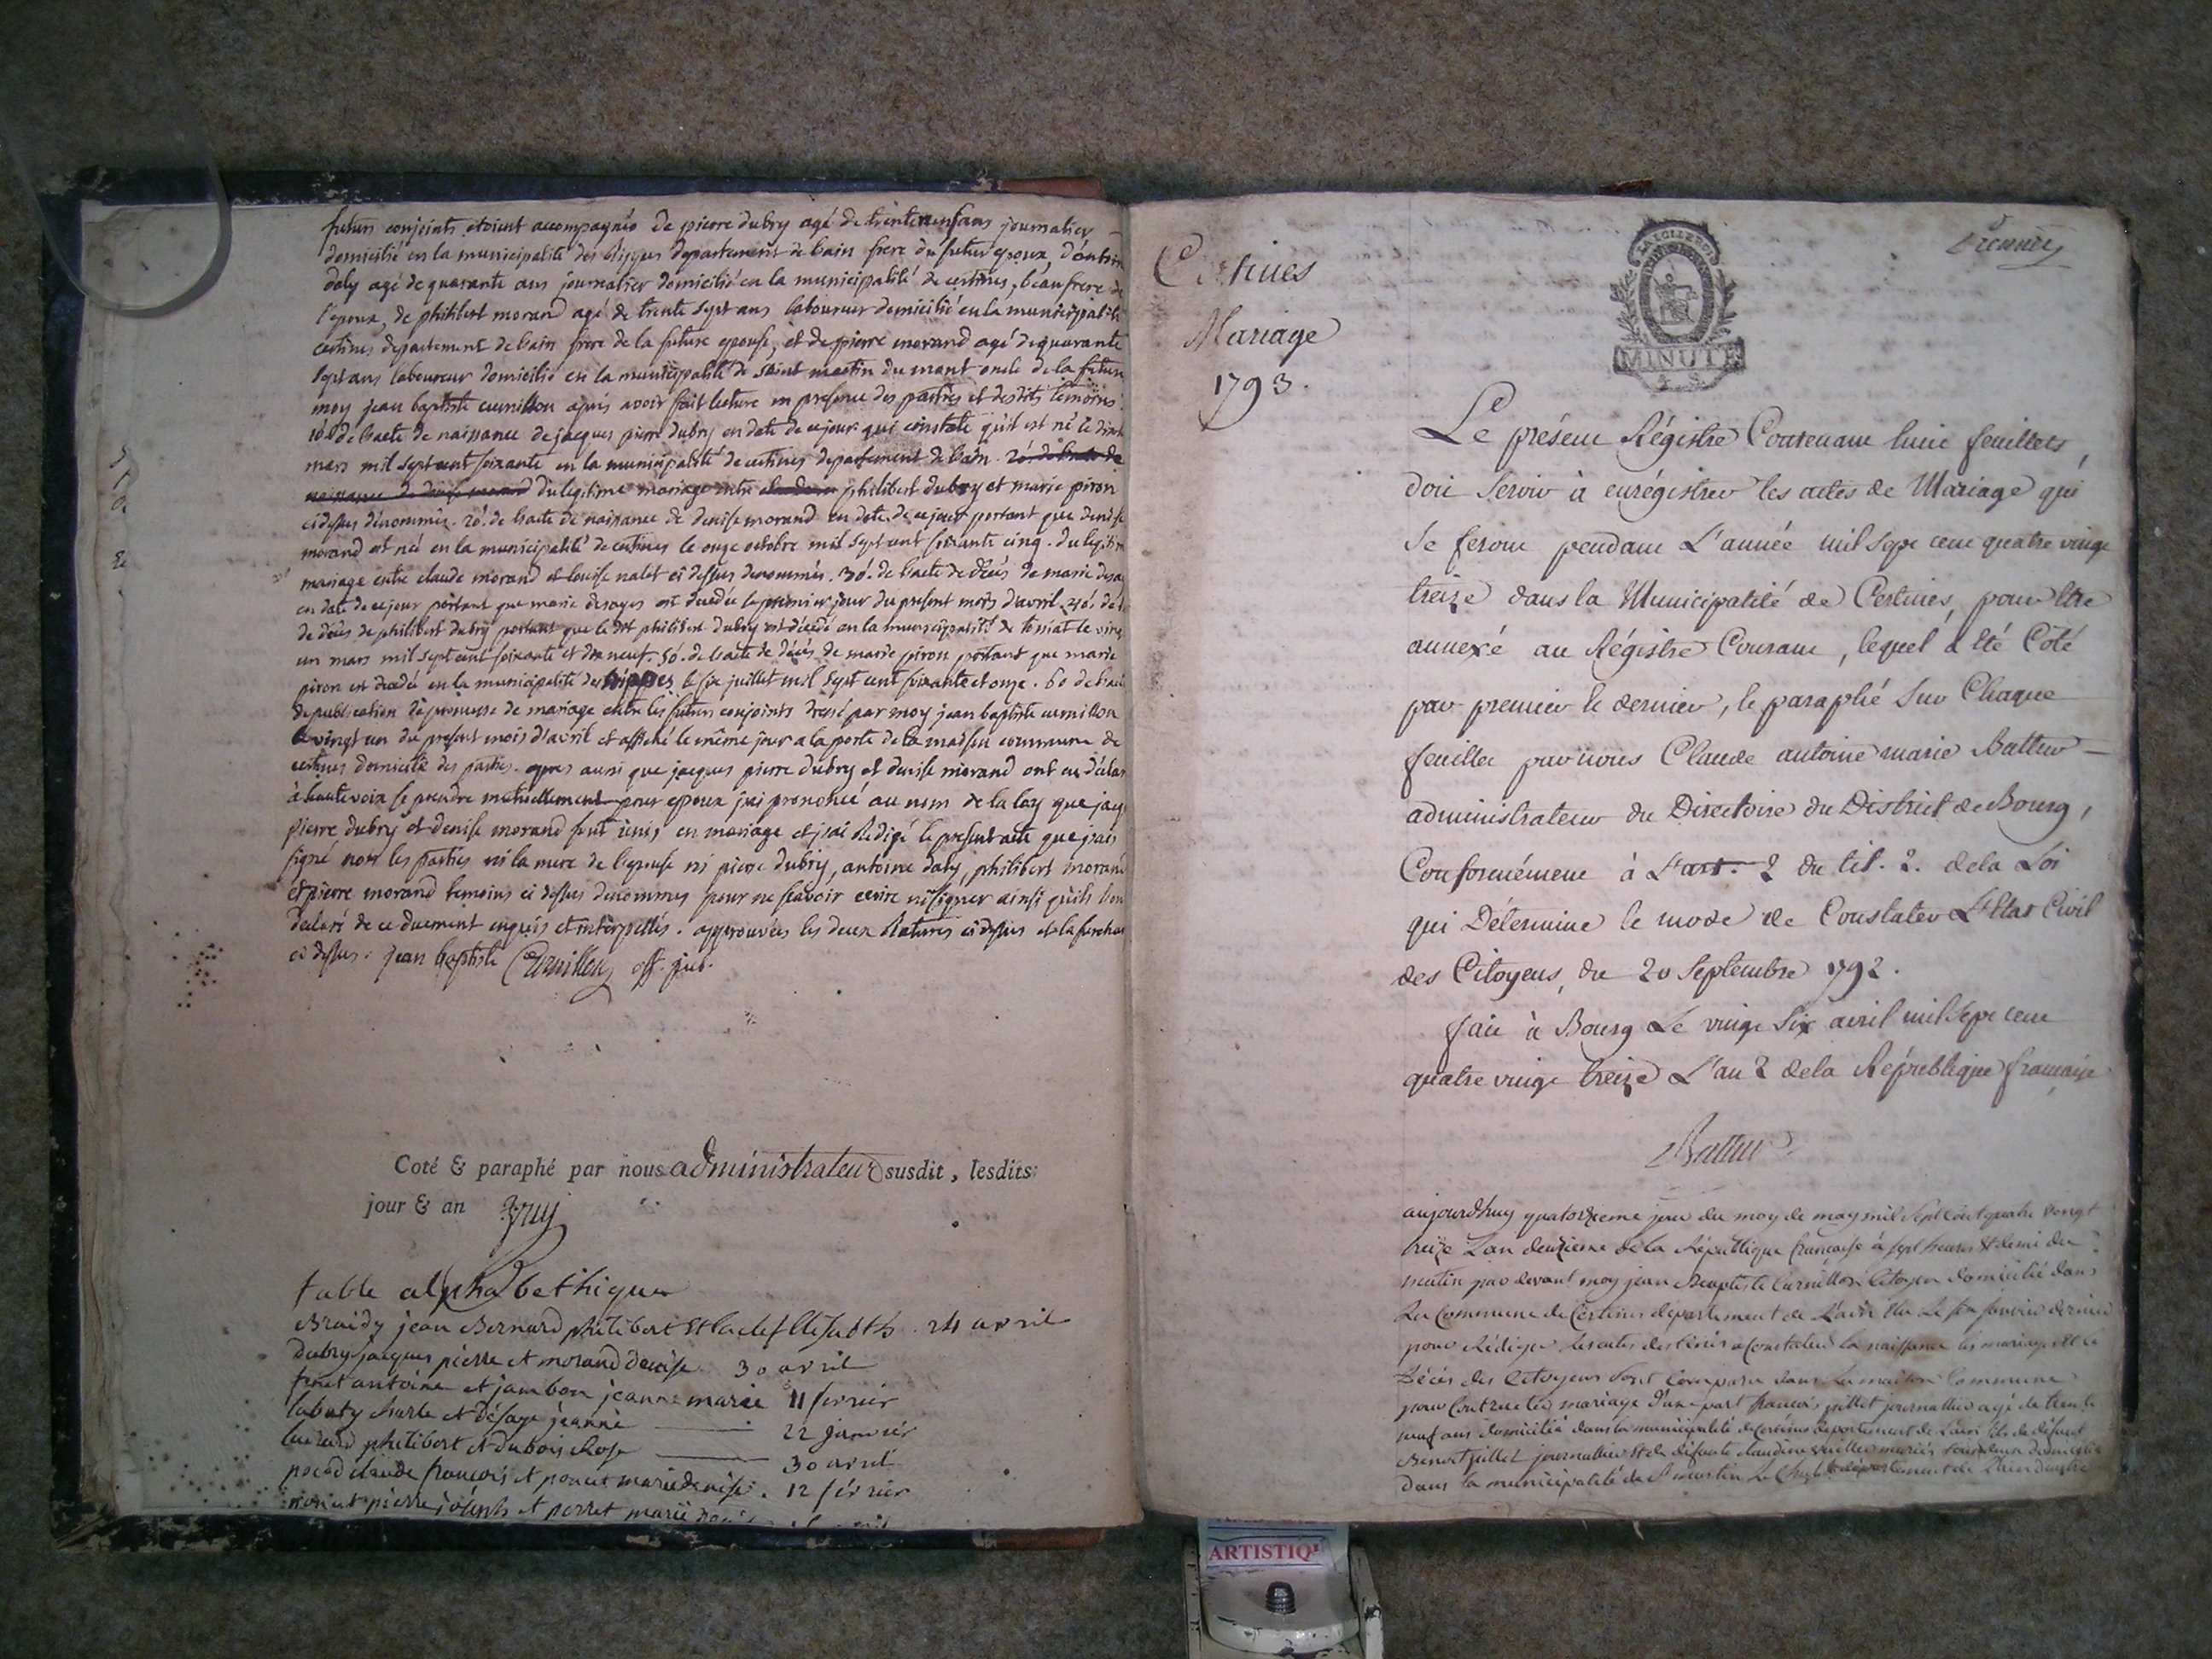 futurs conjoints etoient accompagnés de pierre dubry agé de trente neuf ans journalier
domicilié en la municipalité des Rippes departement de l'ain frere du futur epoux, d'antoine
daly agé de quarante ans journalier domicilié en la municipalité de certines, beau frere de
l'epoux, de philibert morand agé de trente sept ans laboureur domicilié en la municipalité
certines departement de l'ain frere de la future epouse, et de pierre morand agé de quarante
sept ans laboureur domicilié en la municipalité de saint martin du mont oncle de la future
moy jean baptiste curnillon apres avoir fait lecture en presence des parties et desdits temoins
1o. de l'acte de naissance de jacques pierre dubry en date de ce jour qui constate qu'il est né le
mars mil sept cent soixante en la municipalité de certines departement de l'ain. 2o. de l'acte de
naissance de denise morand du legitime mariage entre philibert dubry et marie piron
ci dessus dénommés. 2o. de l'acte de naissance de denise morand en date de ce jour portant que denise
morand est née en la municipalité de certines le onze octobre mil sept cent soixante cinq. du legitime
mariage entre claude morand et louise nalet ci dessus denommés. 3o. de l'acte de décés de marie
en date de ce jour portant que marie desayes est decedée le premier jour du present mois d'avril. 4o. de
de décés de philibert dubry portant que le dit philibert dubry est décedé en la municipalité de tossiat le vingt
un mars mil sept cent soixante et dix neuf. 5o. de l'acte de décés de marie piron portant que marie
piron est decedée en la municipalité des Rippes le six juillet mil sept cent soixante et onze. 6o de l'acte
de publication de promesse de mariage entre les futurs conjoints dressé par moy jean baptiste curnillon
le vingt un du present mois d'avril et affiché le même jour a la porte de la maison commune de
certines domicile des parties. apres aussi que jacques pierre dubry et denise morand ont eu déclaré
à haute voix se prendre mutuellement pour epoux j'ai prononcé au nom de la loy que jacques
pierre dubry et denise morand sont unis en mariage et j'ai Redigé le present acte que j'ais
signé non les parties ni la mere de l'epouse ni pierre dubry, antoine daly, philibert morand
et pierre morand temoins ci dessus denommés pour ne sçavoir ecrire ni signer ainsi qu'ils l'ont
declaré de ce duement enquis et interpellés. approuvées les deux Ratures ci dessus et la surcharge
ci dessus. jean baptiste Curnillon off. pub.
Coté & paraphé par nous administrateur susdit, lesdits
jour & an
table alphabethique
Braidy jean Bernard philibert 24 avril
Dubry jacques pierre et morand denise 30 avril
feret antoine et jambon jeanne marie 11 fevrier
labaty charle et désaye jeanne 22 janvier
philibert et dubois Rose 30 avril
claude françois et poncet marie denise. 12 février
pierre joseph et perret marie
Certines
Mariage
1793.
Premier
LA LOI LE ROI
MINUTE
4 S
Le présent Régistre Contenant huit feuillets,
doit servir à enrégistrer les actes de Mariage qui
se feront pendant L'année mil sept cent quatre vingt
treize dans la Municipalité de Certines, pour être
annexé au Régistre Courant, lequel a été Coté
par premier & dernier, & paraphé sur Chaque
feuillet par nous Claude antoine marie Battur
administrateur du Directoire du District de Bourg,
Conformément à L'art. 2 du tit. 2. de la Loi
qui Détermine le mode de Constater L'Etat Civil
des Citoyens, du 20 Septembre 1792.
fait à Bourg Le vingt six avril mil sept cent
quatre vingt treize L'an 2 de la République française
Battur
aujourd'huy quatorzieme jour du moy de may mil sept cent quatre vingt
treize L'an deuzieme de la République française à sept heures et demi du
matin par devant moy jean Baptiste Curnillon Citoyen domicilié dans
La Commune de Certines departement de L'ain élu Le janvier dernier
pour Rédiger Les actes destinés a Constater la naissance les mariages et le
Décés des Citoyens sont Comparu dans La maison Commune
pour Contracter mariage D'une part françois juillet journallier agé de trente
neuf ans domicilié dans la municipalité de Certines departement de L'ain fils de défunt
Benoit juillet journallier et de défunte Claudine mariés domicilié
Dans la municipalité de St martin Le Chatel departement de L'ain